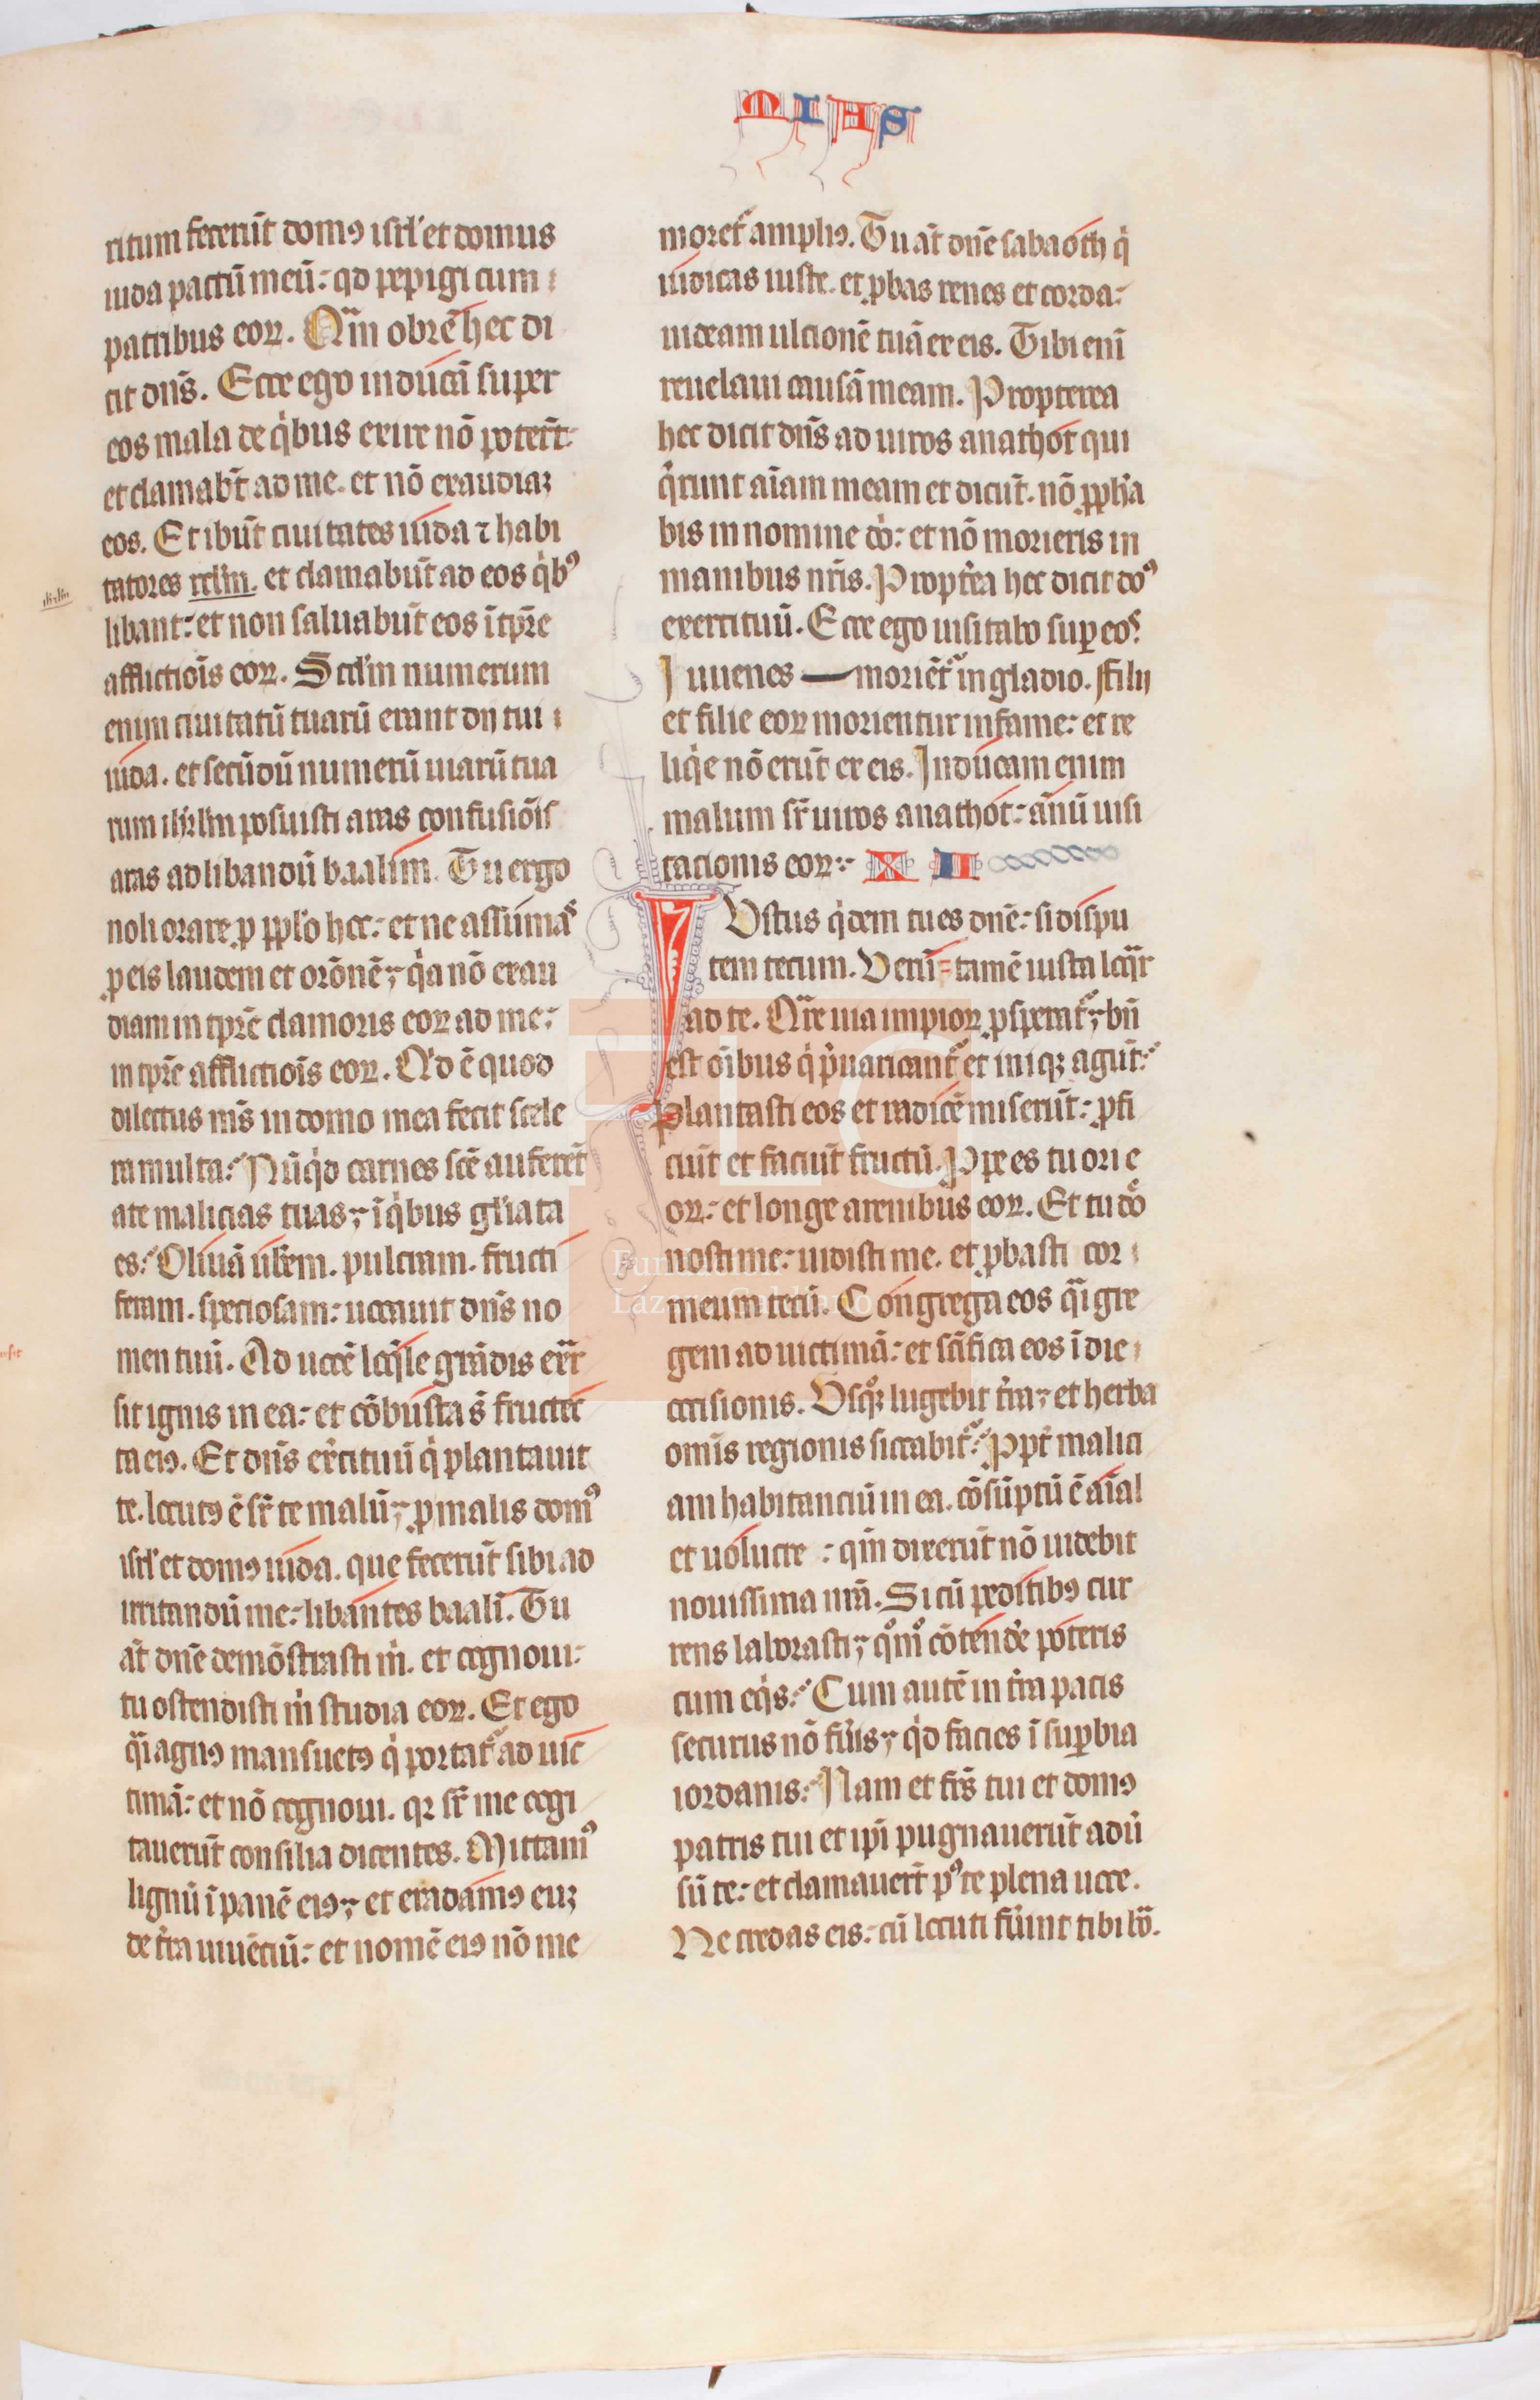 MIAS
ritum fecerūt domꝯ isrl' et domus
iuda pactū meū: qd pepigi cum
patribus eoꝝ. Qm̄ obrē hec di
cit dn̄s. Ecce ego inducā super
eos mala de qͥbus exire nō poterr̄t:
et clamabt̄ ad me. et nō exaudiaꝫ
eos. Et ibūt ciuitates iuda ⁊ habi
tatores relm̄. et clamabūt ad eos qͥbꝰ
libant: et non saluabūt eos ī tp̄re
afflictiōis eoꝝ. Scdm̄ numerum
enim ciuitatū tuarū erant dij tui
iuda. et secūdū numerū uiarū tua
rum ihrl̄m posuisti aras confusiōis
aras ad libandū baalim. Tu ergo
noli orare ꝓ ppl'o hoc: et ne assumas
ꝓ eis laudem et orōnē; qͥa nō exau
diam in tp̄re clamoris eoꝝ ad me:
in tp̄re afflictiōis eoꝝ. Qͥd ē quod
dilectus ms̄ in domo mea fecit scele
ra multa: Nūqͥd carnes scē auferēt
a te malicias tuas; ī qͥbus gl'iata
es: Oliuā ub̄em. pulcram. fructi
feram. speciosam: uocauit dn̄s no
men tuū. Ad uocē loq̄le grādis exr̄
sit ignis in ea: et cōbusta s̄ fructec
ta eiꝯ. Et dn̄s ex̄cituū qͥ plantauit
te. locutꝯ ē sr̄ te malū; ꝓ malis domꝰ
isrl' et domꝯ iuda. que fecerūt sibi ad
irritandū me: libantes baalī. Tu
aūt dn̄e demōstrasti m̄. et cognoui:
tu ostendisti m̄ studia eoꝝ. Et ego
qͣi agnꝯ mansuetꝯ qͥ portat᷑ ad uic
timā: et nō cognoui. qꝛ sr̄ me cogi
tauerūt consilia dicentes. Mittamꝰ
lignū ī panē eiꝯ; et eradamꝯ euꝫ
de t̄ra uiuēciū: et nomē eiꝯ nō me
moret᷑ ampliꝯ. Tu aūt dn̄e sabaoth qͥ
iudicas iuste. et ꝓbas renes et corda:
uideam ulcionē tuā ex eis. Tibi enī
reuelaui causā meam. Propterea
hec dicit dn̄s ad uiros anathot qui
qͦrunt aīam meam et dicūt. nō ꝓph̄a
bis in nomine dn̄i: et nō morieris in
manibus nr̄is. Propt̄ea hec dicit dn̄s
exercituū. Ecce ego uisitabo sup eoˢ
Iuuenes — moriēt᷑ in gladio. filij
et filie eoꝝ morientur in fame: et re
liqͥe nō erūt ex eis. Inducam enim
malum sr̄ uiros anathot: annū uisi
tationis eoꝝ: XII
IUstus qͥdem tu es dn̄e: si dispu
tem tecum. Verū=tamē iusta loqͣr
ad te. Qͣre uia impioꝝ ꝓsperat᷑; bn̄
est oībus qͥ p̄uaricant᷑ et iniqꝫ agūt:
Plantasti eos et radicē miserūt: ꝓfi
ciūt et faciūt fructū. Ppe es tu ori e
oꝝ: et longe a renibus eoꝝ. Et tu dn̄e
nosti me: uidisti me. et ꝓbasti cor
meum tecū. Congrega eos qͣi gre
gem ad uictimā: et scīfica eos ī die
occisionis. Vsqꝫqͦ lugebit t̄ra; et herba
omīs regionis siccabit᷑: Ppt̄ malici
am habitanciū in ea. cōsūptū ē aīal
et uolucre : qm̄ dixerūt nō uidebit
nouissima nr̄a. Si cū peditibꝯ cur
rens laborasti; qͦmͦ cōtend̄e poteris
cum eqͥs: Cum autē in t̄ra pacis
securus nō fu̇is; qͥd facies ī supbia
iordanis: Nam et frs̄ tui et domꝯ
patris tui et ip̄i pugnauerūt adu̇
sū te: et clamauer̄t pꝰ te plena uoce.
Ne credas eis: cū locuti fu̇int tibi bōa.